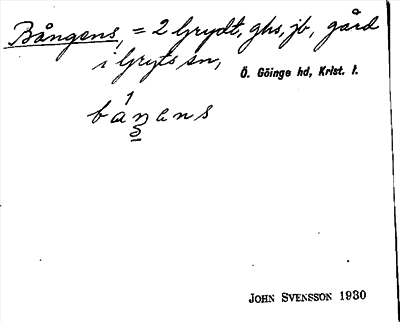 Bångens, = 2 Grydt, ghs, jb, gård
i Gryts sn,
Ö. Göinge hd, Krist. l.
1
bånens
s
JOHN SVENSSON 1930